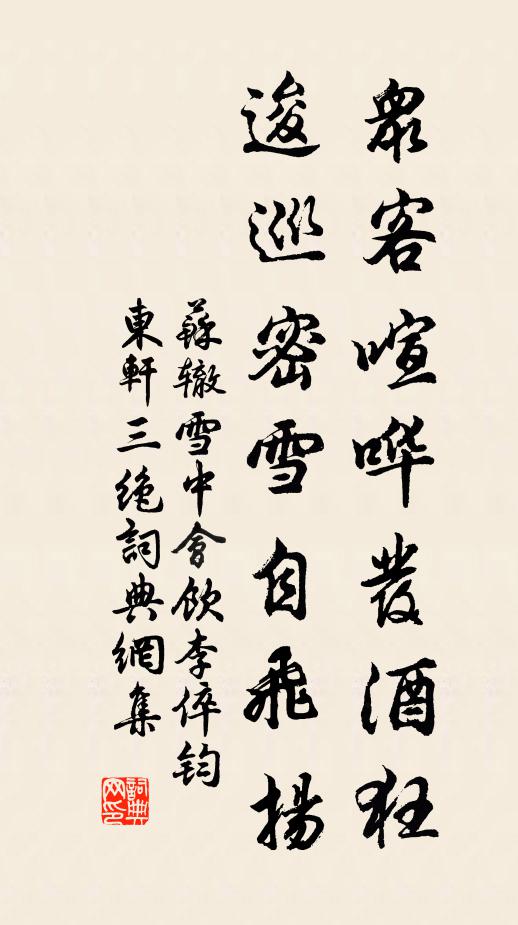 眾客喧哗發酒狂
逡巡密雪自飛揚
蘇辙雪中會飲李倅钧
東軒三絕詞典網集
詞典
网印